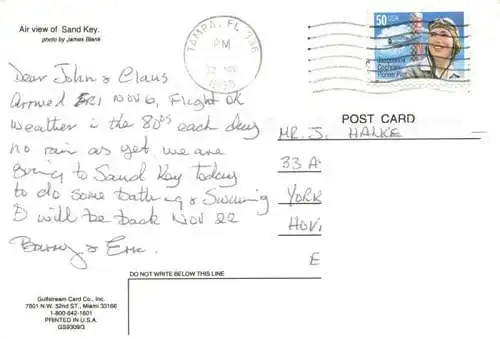 Air view of Sand Key.
photo by James Blank
TAMPA, FL 336
PM
50 USA
Jacqueline
Cochran
Pioneer Pilot
Dear John & Claus
Arrived FRI NOV 6, Flight OK
Weather in the 80's each day
no rain as yet, we are
going to Sand Key today
to do some bathing & Swimming
I will be back NOV 22
Barry & Eric
POST CARD
MR. J. HAUKE
33 A
YORK
HOV
E
DO NOT WRITE BELOW THIS LINE
Gulfstream Card Co., Inc.
7801 N.W. 52nd ST., Miami 33166
1-800-842-1601
PRINTED IN U.S.A.
GS9309G